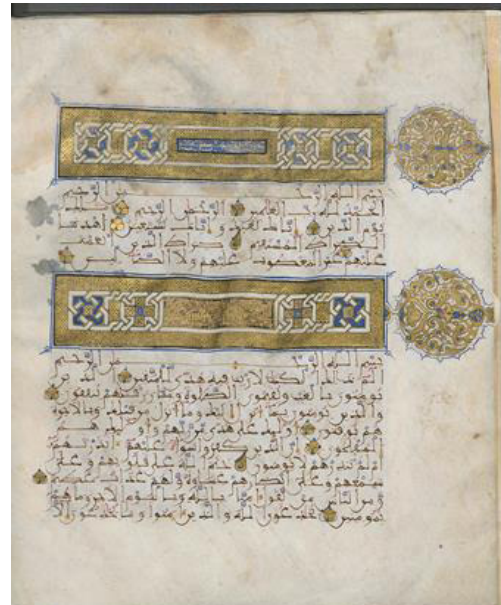 بسم الله الرحمن الرحيم
الحمد لله رب العلمين الرحمن الرحيم ملك
يوم الدين إياك نعبد وإياك نستعين اهدنا
الصراط المستقيم صراط الذين أنعمت
عليهم غير المغضوب عليهم ولا الضالين
بسم الله الرحمن الرحيم
الم ذلك الكتب لا ريب فيه هدى للمتقين الذين
يومنون بالغيب ويقيمون الصلوة ومما رزقنهم ينفقون
والذين يومنون بما أنزل إليك وما أنزل من قبلك وبالاخرة
هم يوقنون أوليك على هدى من ربهم وأوليك هم
المفلحون إن الذين كفروا سواء عليهم ءانذرتهم
أم لم تنذرهم لا يومنون ختم الله على قلوبهم وعلى
سمعهم وعلى أبصرهم غشوة ولهم عذاب عظيم
ومن الناس من يقول ءامنا بالله وباليوم الاخر وما هم
بمومنين يخدعون الله والذين ءامنوا وما يخدعون إلا